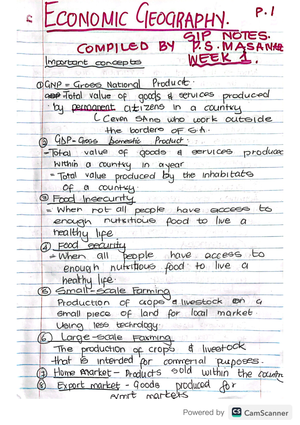 ECONOMIC GEOGRAPHY. P.1
SIP NOTES.
COMPILED BY P.S. MASANHE
Important concepts WEEK 1.
① GNP = Gross National Product.
Total value of goods & services produced
by permanent citizens in a country
(even SANs who work outside
the borders of S.A.
② GDP - Gross Domestic Product:
- Total value of goods & services produce
within a country in a year
- Total value produced by the inhabitants
of a country.
③ Food Insecurity
- When not all people have access to
enough nutritious food to live a
healthy life.
④ Food security
- When all people have access to
enough nutritious food to live a
healthy life.
⑤ Small-scale Farming
Production of crops & livestock on a
small piece of land for local market.
Using less technology.
⑥ Large-scale Farming
The production of crops & livestock
that is intended for commercial purposes.
⑦ Home market - Products sold within the country
⑧ Export market - Goods produced for
markets
Powered by CS CamScanner